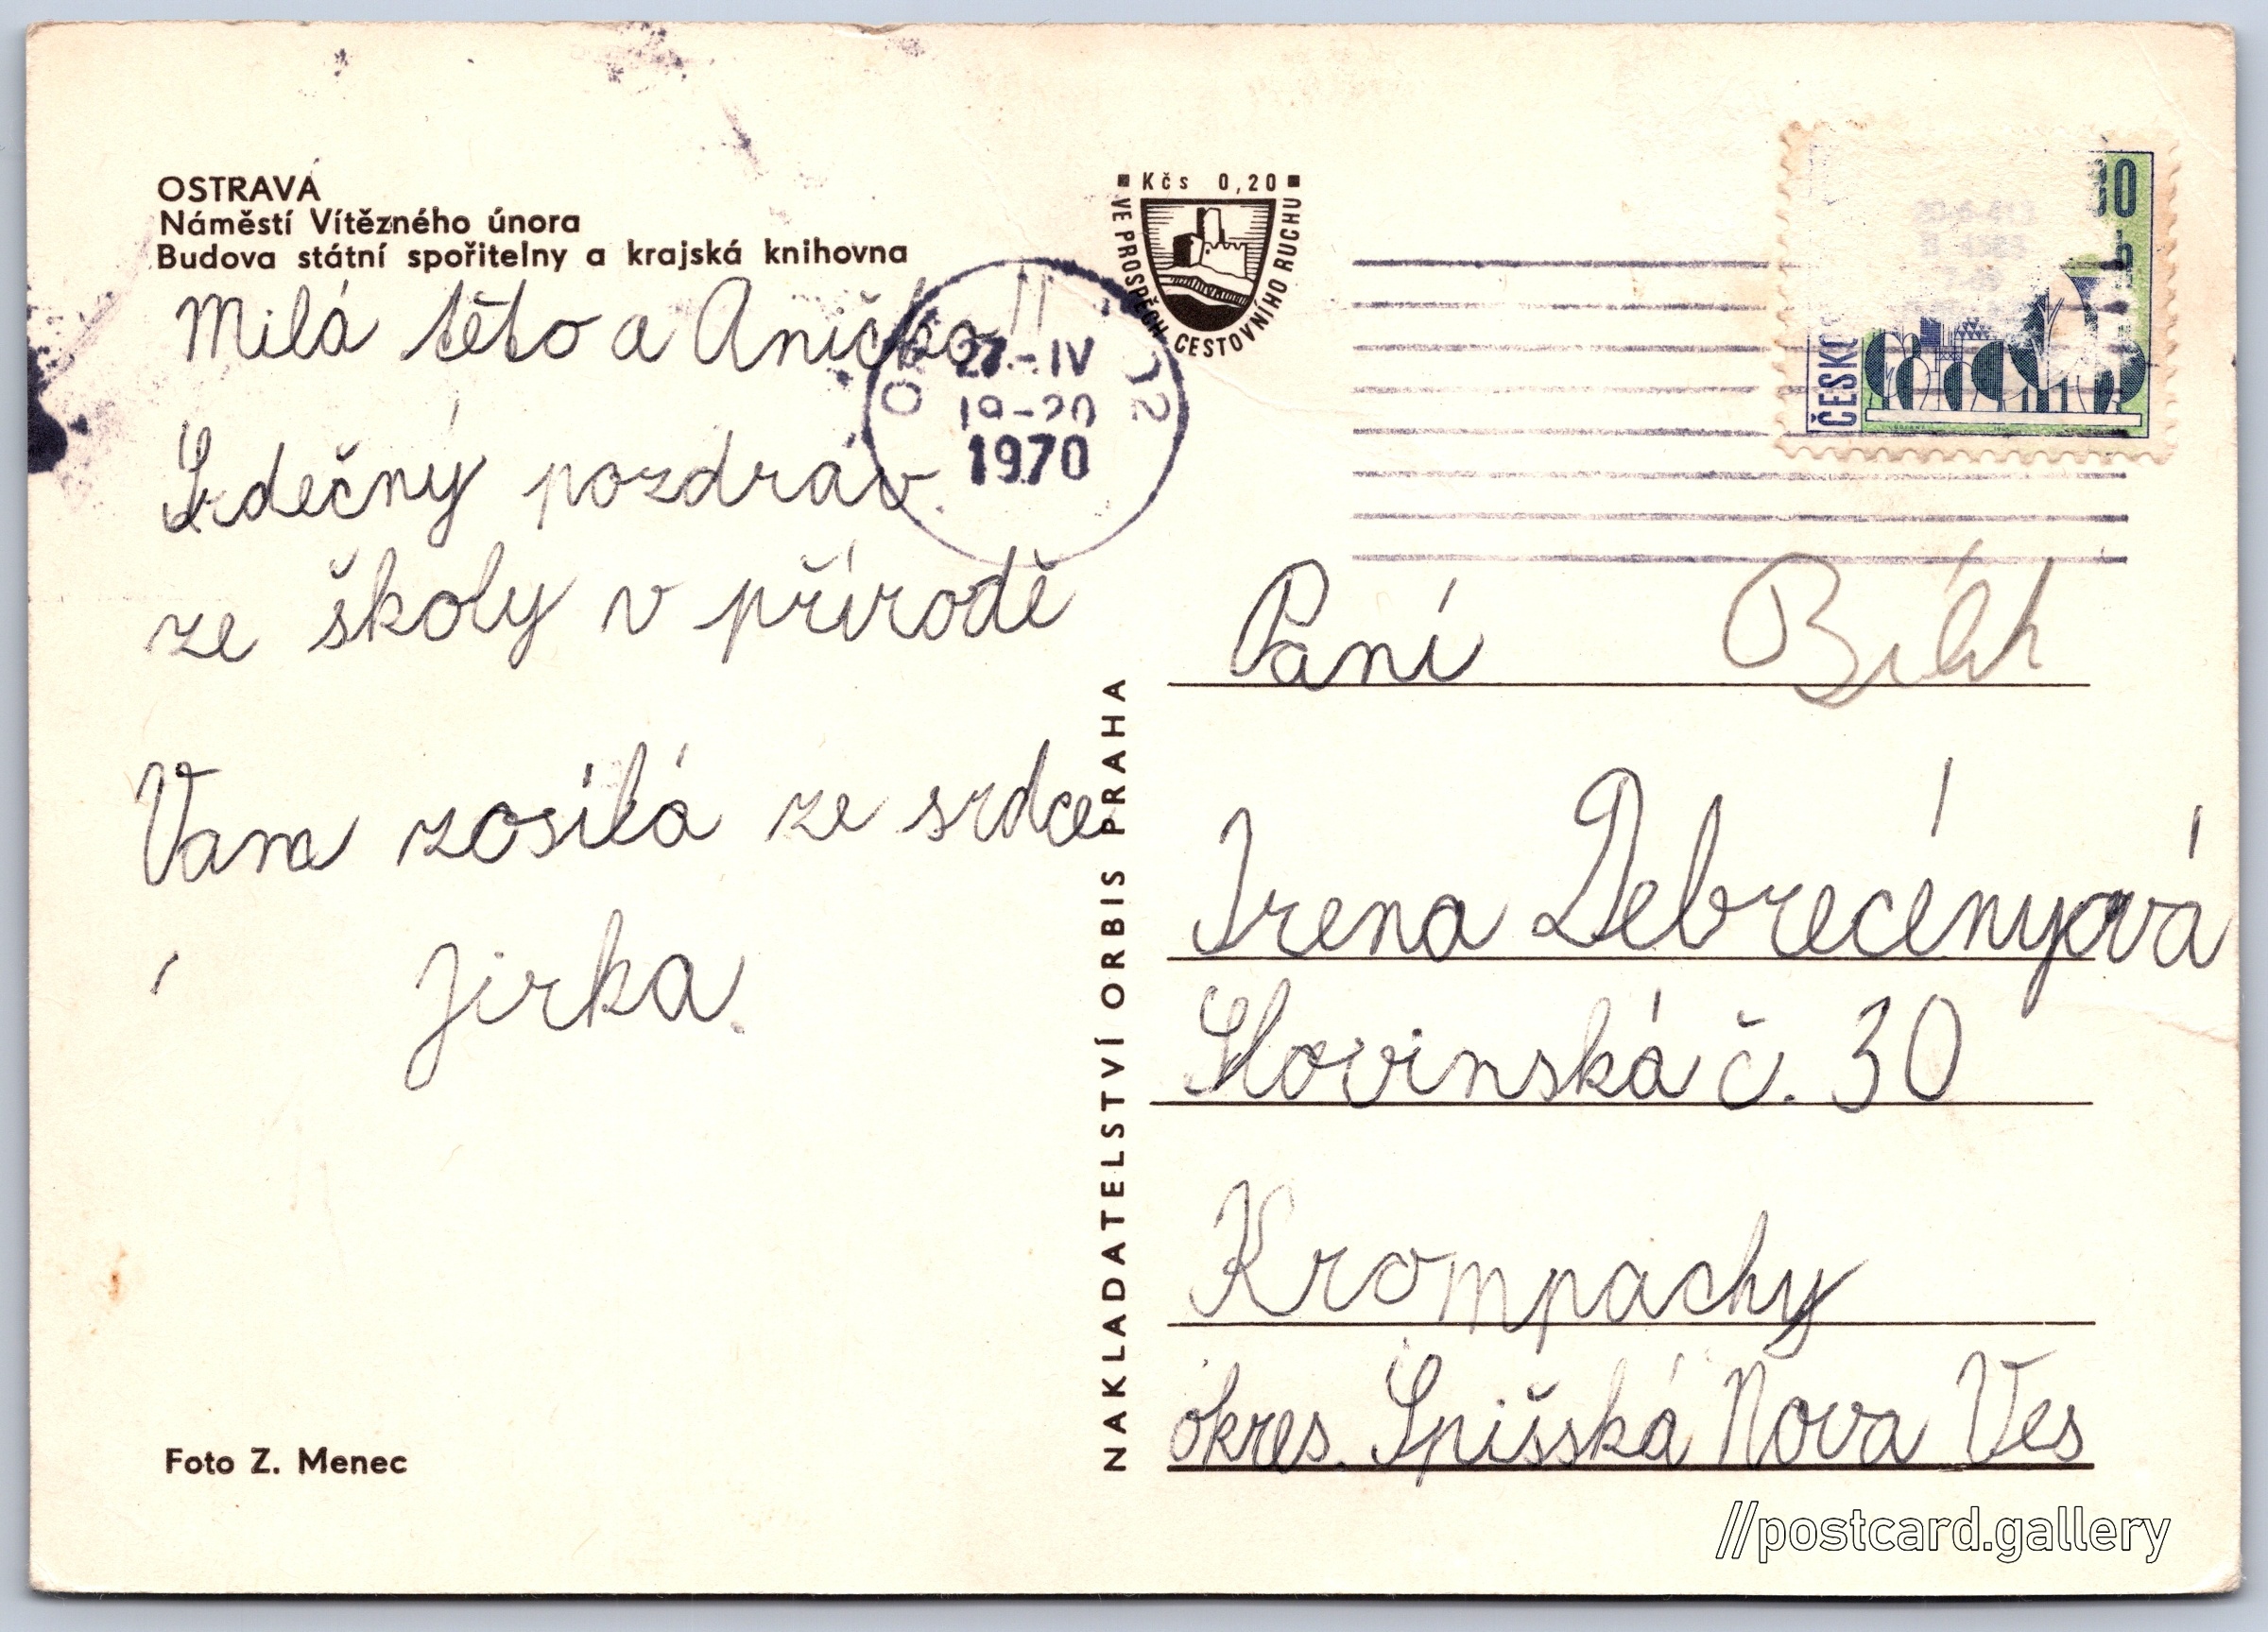 OSTRAVA
Náměstí Vítězného února
Budova státní spořitelny a krajská knihovna
Milá této a Aničko!!
Srdečný pozdrav.
ze školy v přírodě
Vam zosílá ze srdce
Jirka.
Foto Z. Menec
NAKLADATELSTVÍ ORBIS PRAHA
Kčs 0,20
VE PROSPĚCH CESTOVNÍHO RUCHU
27.-IV
19-20
1970
ČESKO
Paní
Irena Debrecényová
Slovinská č. 30
Krompachy
okres. Spišská Nova Ves
//postcard.gallery